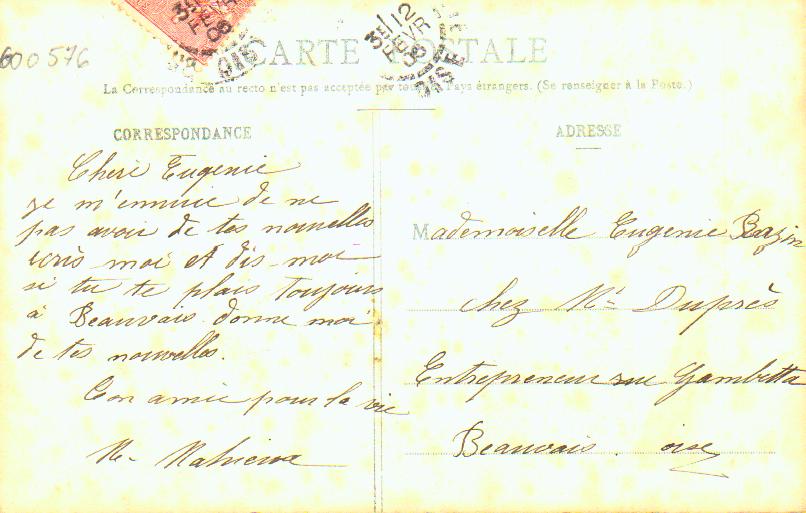 600576
CARTE POSTALE
La Correspondance au recto n'est pas acceptée par tous les Pays étrangers. (Se renseigner à la Poste.)
CORRESPONDANCE
Cheri Eugenie
je m'ennuie de ne
pas avoir de tes nouvelles
ecris moi et dis-moi
si tu te plais toujours
à Beauvais. donne moi
de tes nouvelles.
Ton amie pour la vie
ADRESSE
Mademoiselle Eugenie Bazin
chez Mr Duprès
Entrepreneur rue Gambetta
Beauvais. oise
12
OISE